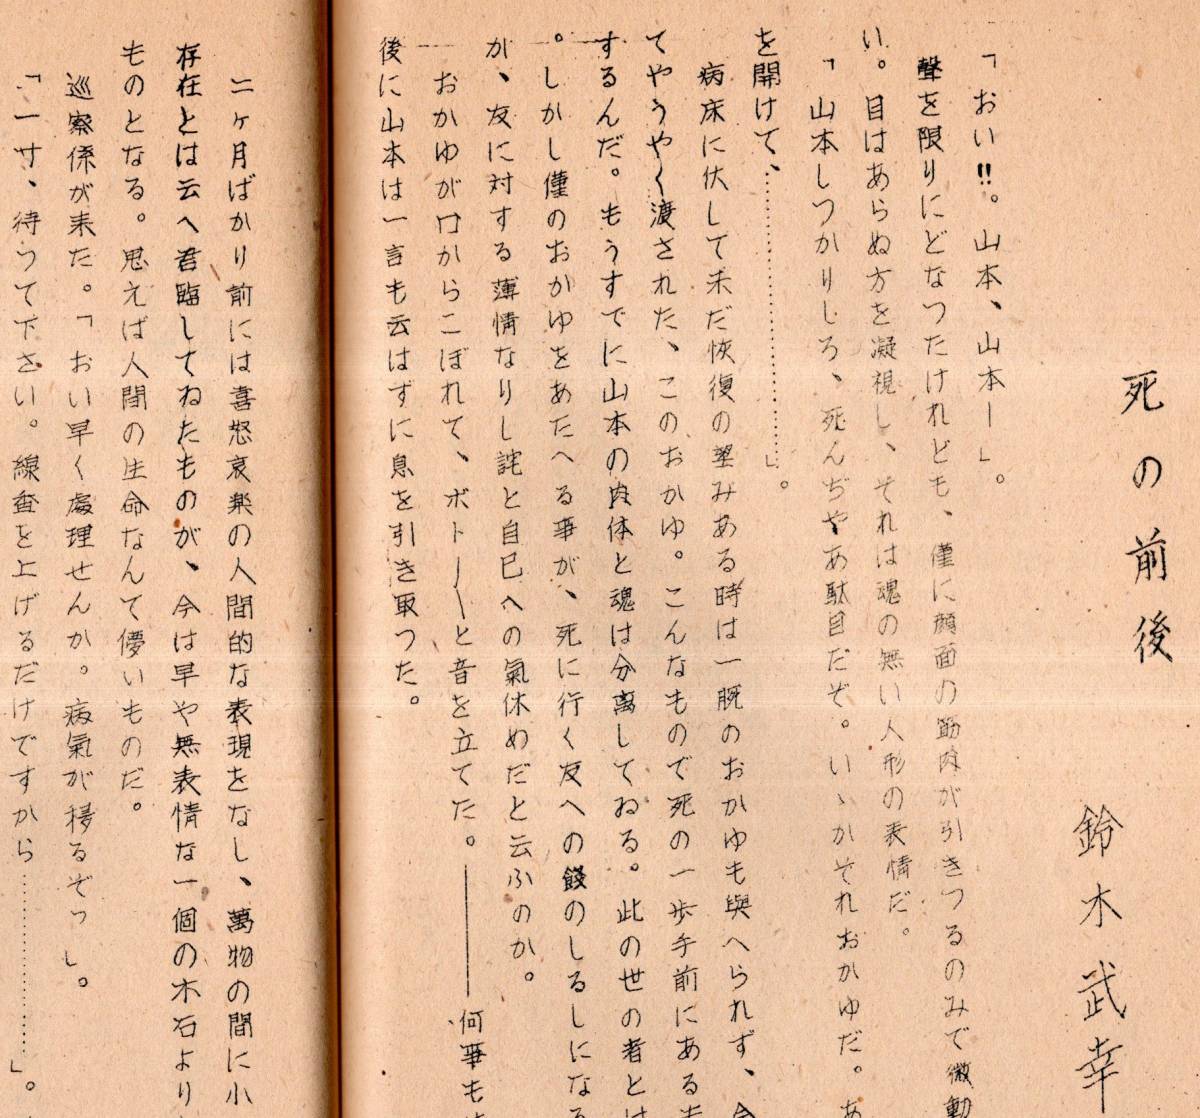 死の前後
鈴木武幸
「おい!!。山本、山本ー」。
聲を限りにどなつたけれども、僅に顔面の筋肉が引きつるのみで微動
い。目はあらぬ方を凝視し、それは魂の無い人形の表情だ。
「山本しつかりしろ、死んぢやあ駄目だぞ。いゝかそれおかゆだ。あ
を開けて、……………………」。
病床に伏して未だ恢復の望みある時は一腕のおかゆも與へられず、今
てやうやく渡された、このおかゆ。こんなもので死の一歩手前にあるも
するんだ。もうすでに山本の肉体と魂は分离してゐる。此の世の者とは
。しかし僅のおかゆをあたへる事が、死に行く友への餞のしるしになる
が、友に対する薄情なりし詫と自己への氣休めだと云ふのか。
おかゆが口からこぼれて、ポトーーと音を立てた。————何事も
後に山本は一言も云はずに息を引き取つた。
二ヶ月ばかり前には喜怒哀楽の人間的な表現をなし、萬物の間に小
存在とは云へ君臨してゐたものが、今は早や無表情な一個の木石より
ものとなる。思えば人間の生命なんて儚いものだ。
巡察係が来た。「おい早く處理せんか。病氣が移るぞッ」。
「一寸、待つて下さい。線香を上げるだけですから……………」。